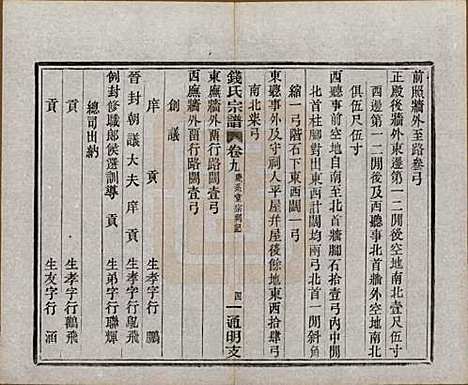 前照牆外至路叁弓
正殿後牆外東邊第一二開後空地南北壹尺伍寸
西邊第一二開後及西聽事北首牆外空地南北
俱伍尺
西聽事前空地自南至北首牆腳石拾壹弓內中開
北首柱腳對出東西計闊均兩弓北首一開斜角
縮一弓階石下東西闊一弓
東聽事外及守祠人平屋井屋後餘地東西拾肆弓
南北柒弓
東廡牆外留行路闊壹弓
西廡牆外留行路闊壹弓
錢氏宗譜 卷九 慶系堂宗祠記 四 通明支
創議
庠貢 生孝字行鵬
晉封朝議大夫庠貢 生孝字行鳳飛
例封修職郎侯選訓導 生弟字行聯輝
總司出納
貢 生孝字行鶴飛
貢 生友字行涵